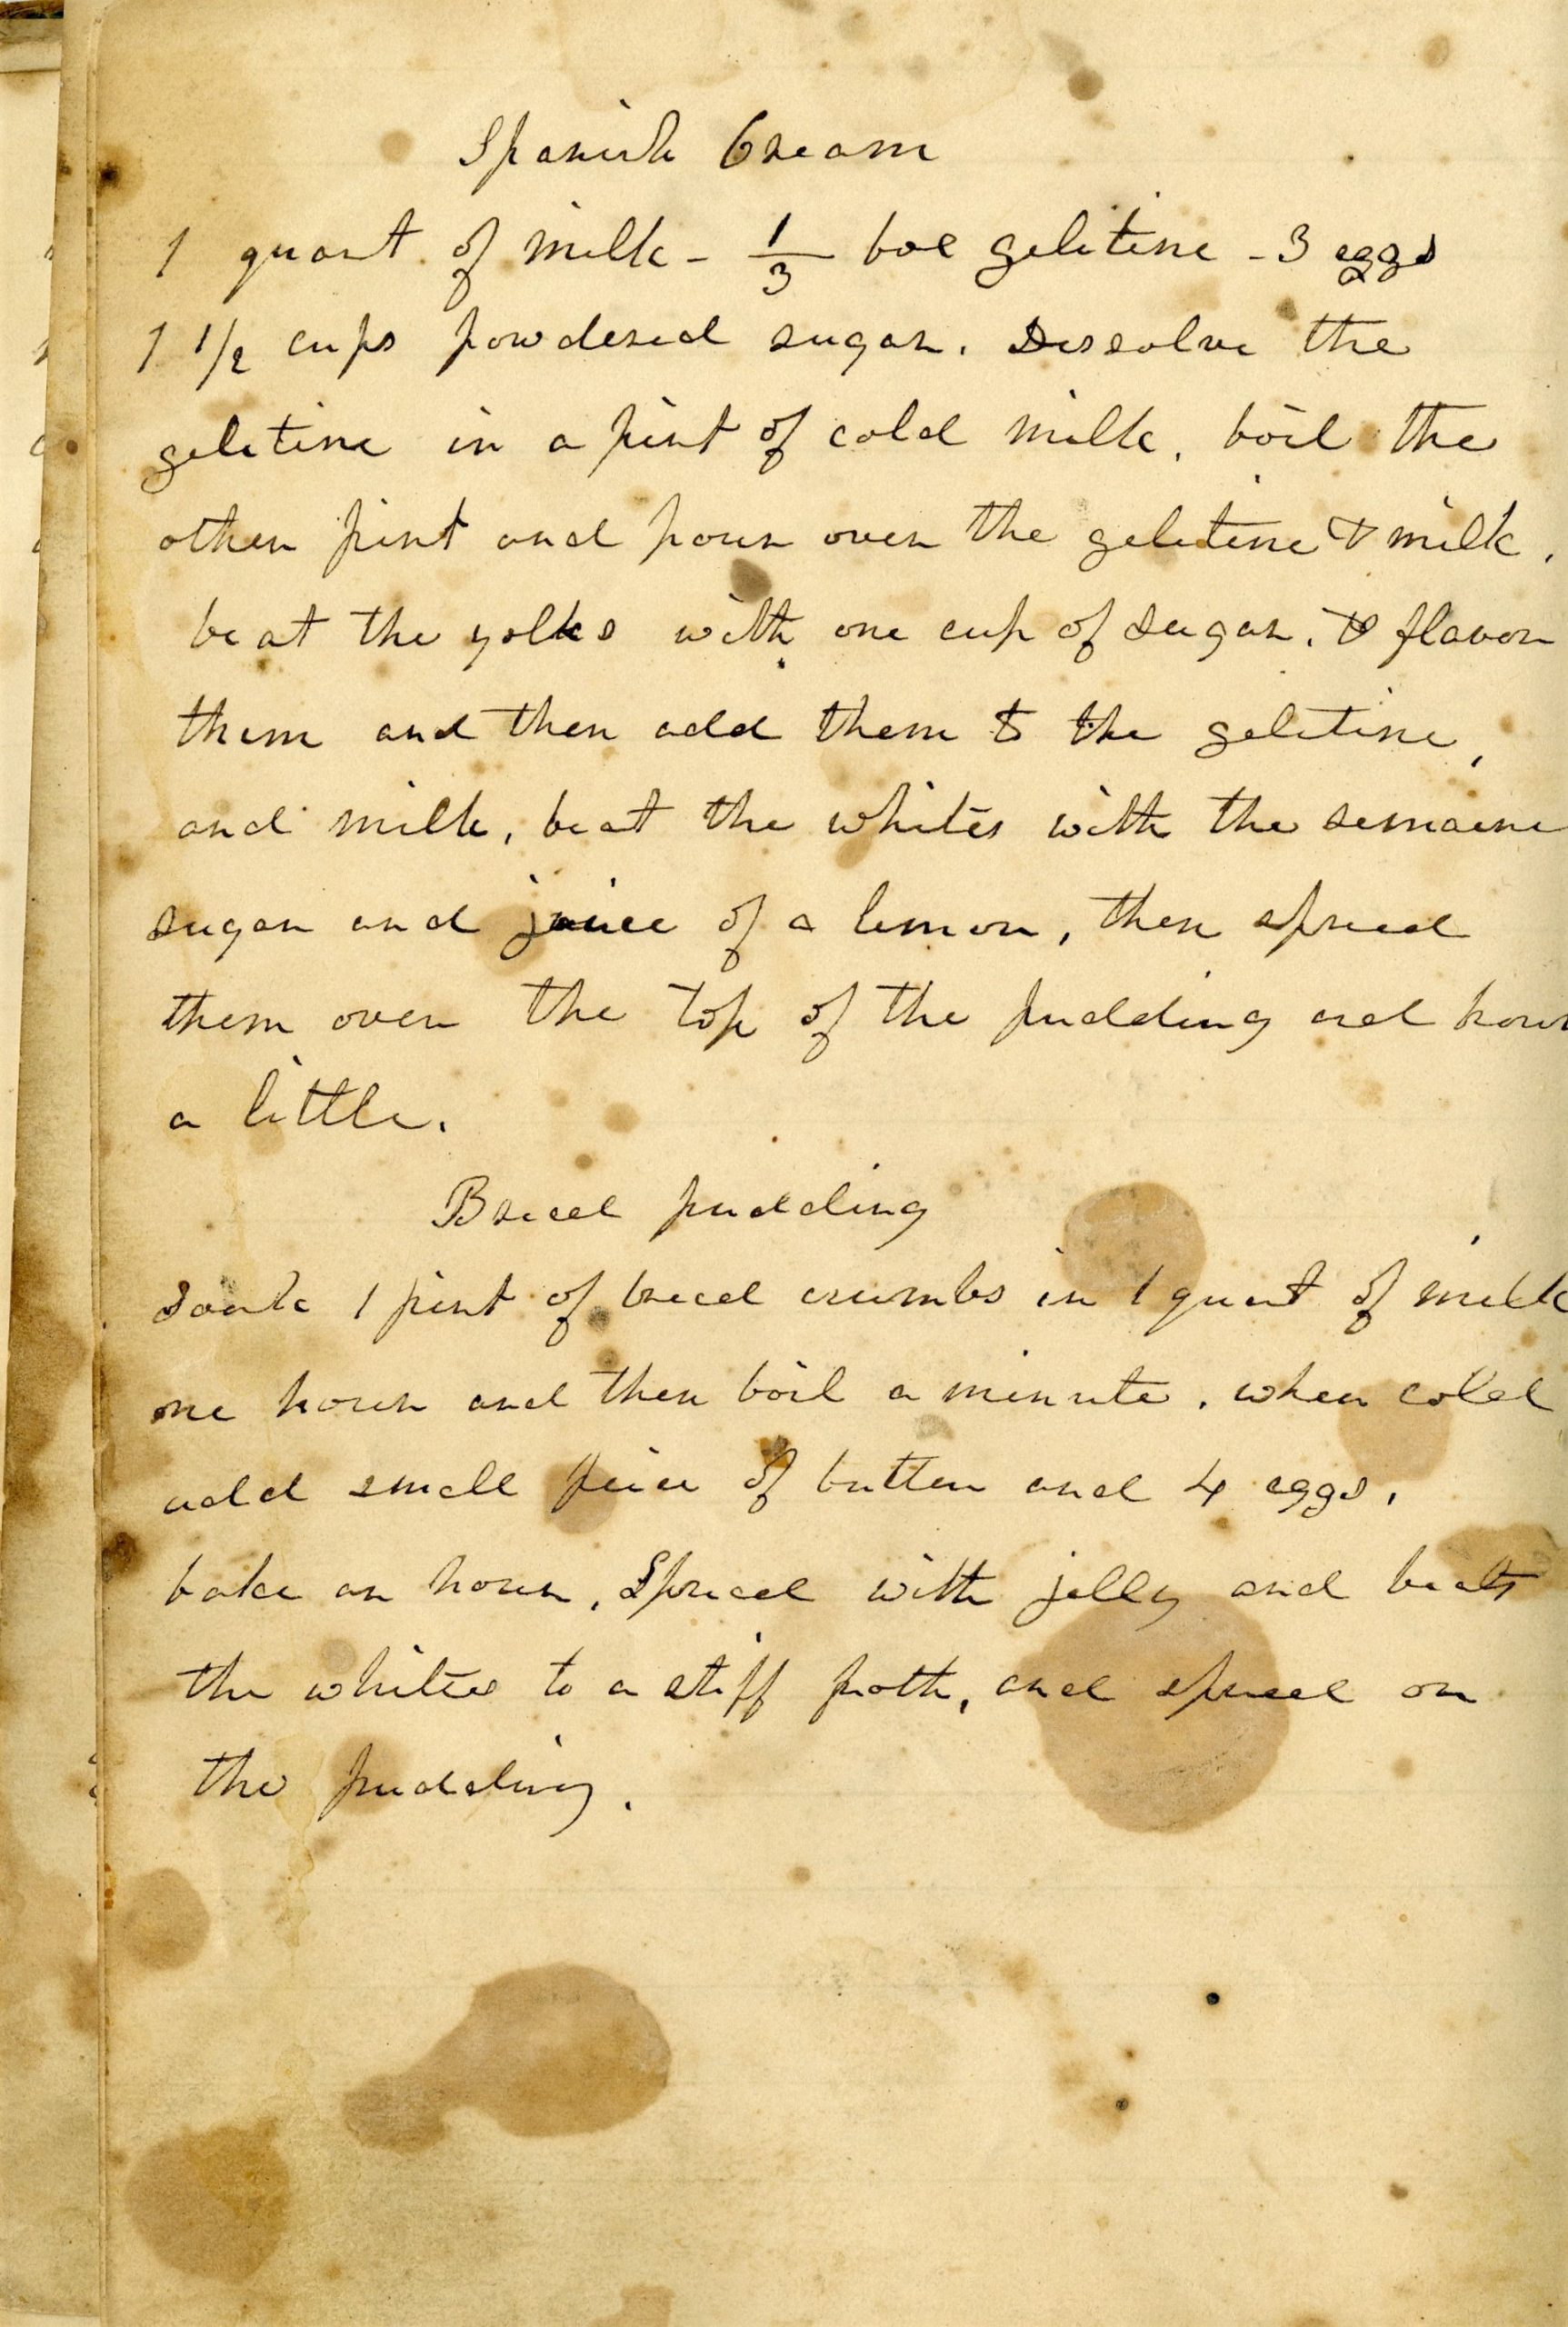 Spanish Cream
1 quart of milk - 1/3 box geletine - 3 eggs
1 1/2 cups powdered sugar. Dissolve the
geletine in a pint of cold milk, boil the
other pint and pour over the geletine & milk,
beat the yolks with one cup of sugar, & flavor
them and then add them to the geletine,
and milk, beat the whites with the remaine
sugar and juice of a lemon, then spread
them over the top of the pudding and
a little.
Bread pudding
Soake 1 pint of bread crumbs in 1 quart of milk
one hour and then boil a minute, when cold
add small peice of butter and 4 eggs,
bake an hour, Spread with jelly and beat
the whites to a stiff froth, and spread on
the pudding.